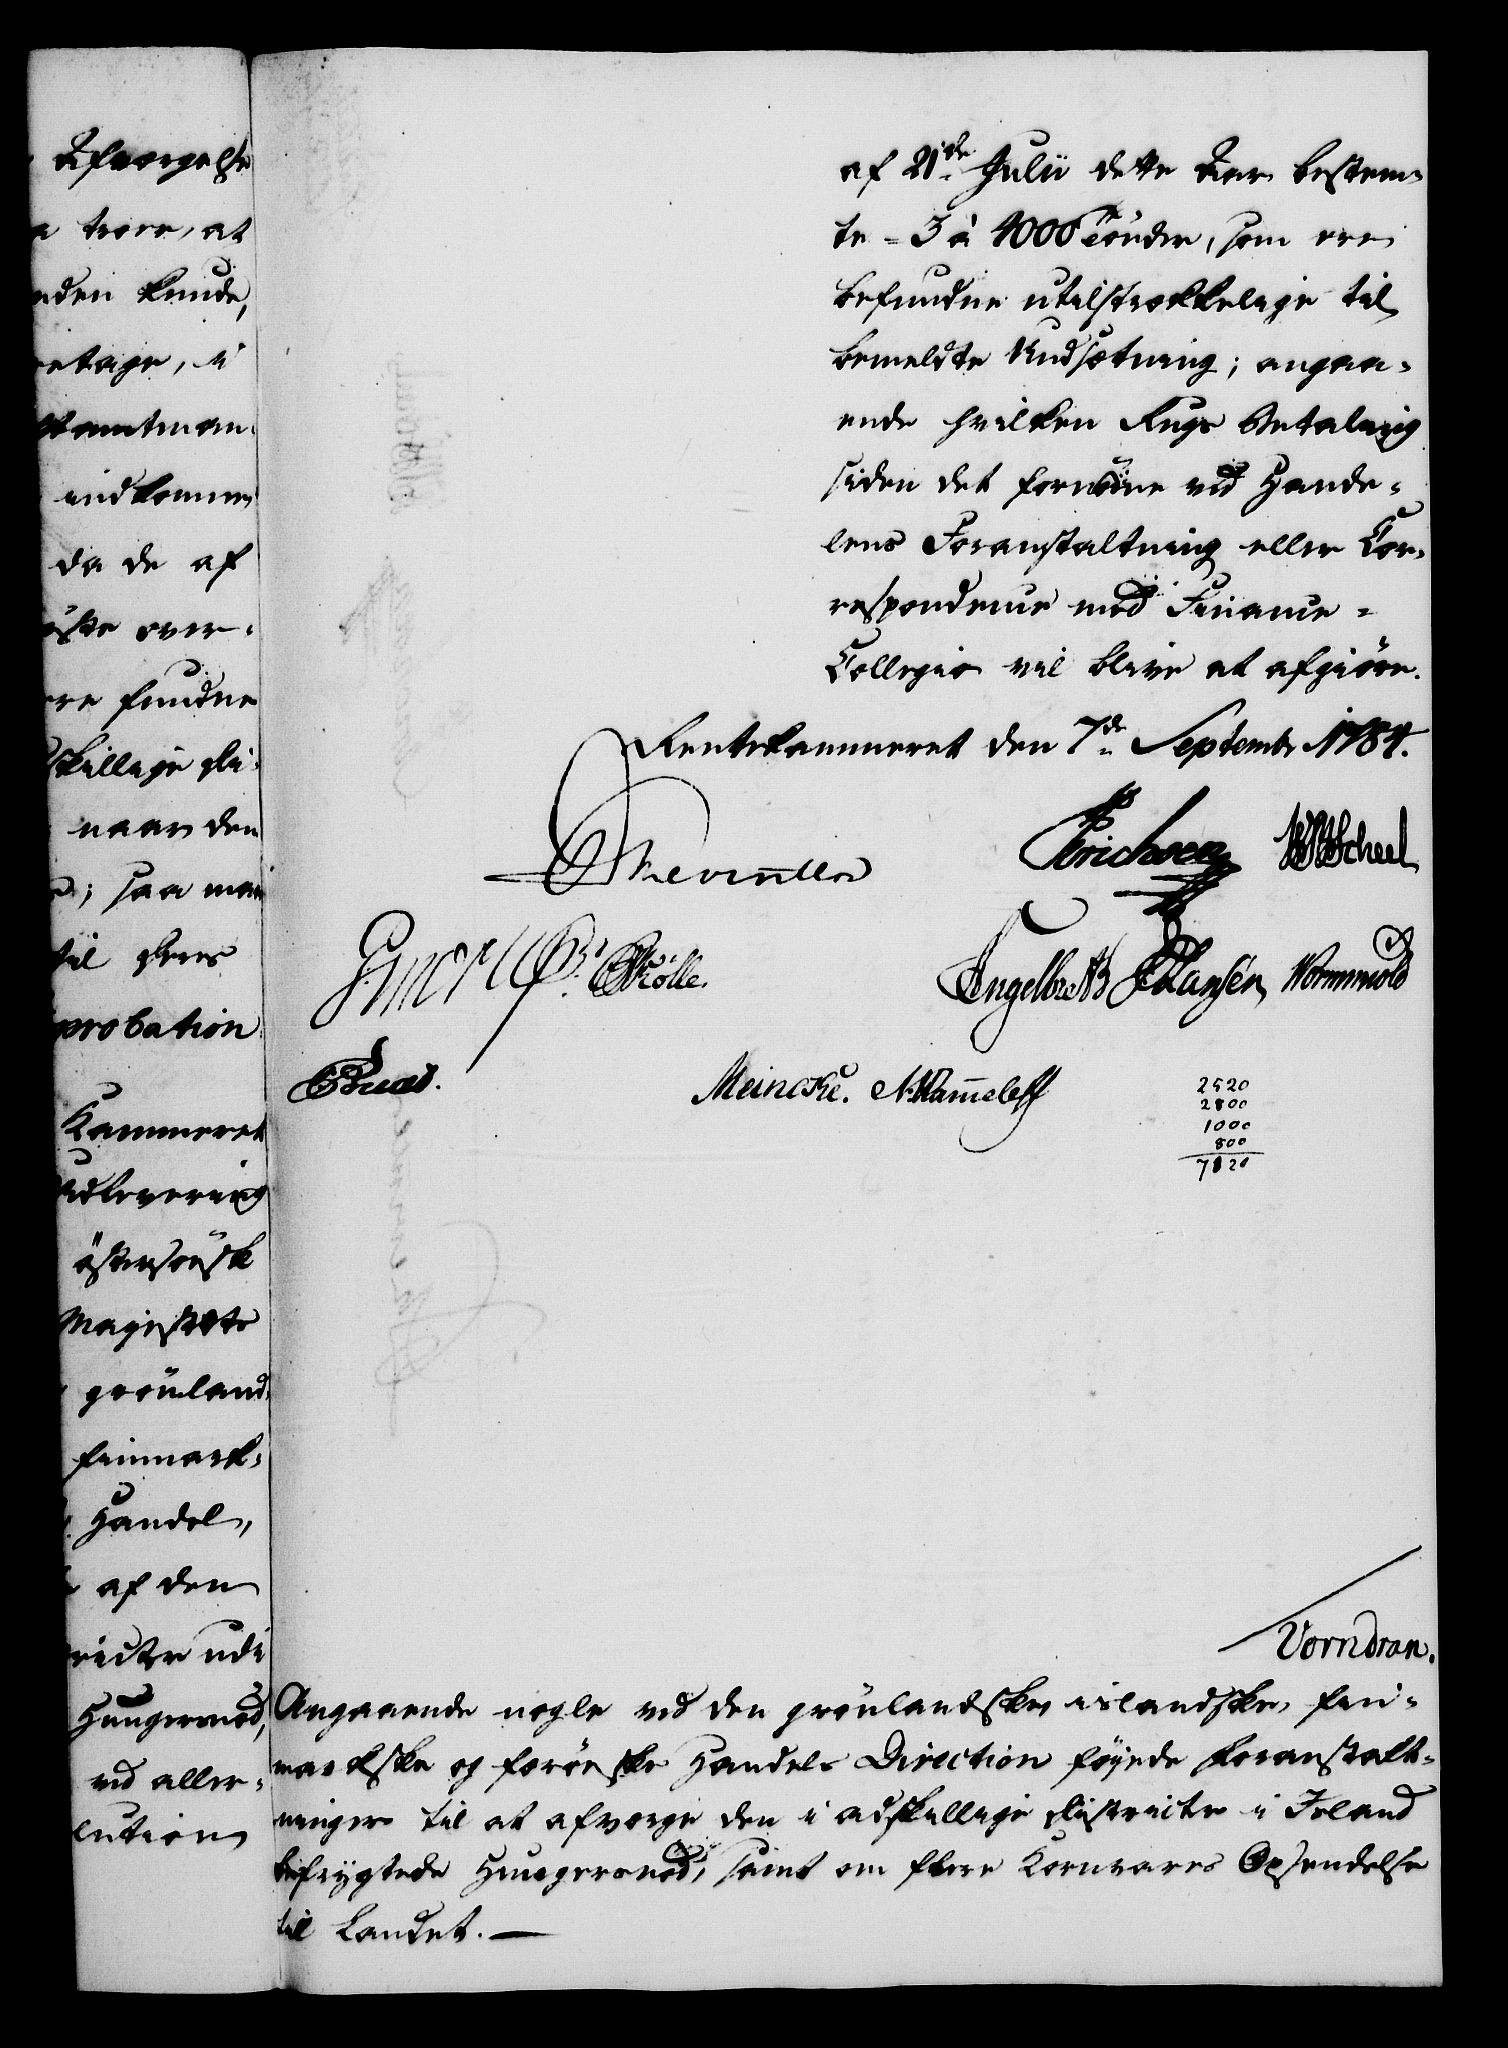 Afværgelse
troer, at
inden kunde,
retage, i
Stiftamtman-
indkomme
da de af
øste over-
re fundne
skillige Di-
naar den
; saa maae
til deres
probation
Kammeret
Udlevering
östersöisk
Magistrets
grönland-
finmark-
Handel,
af den
tricter udi
Hungersnöd,
ved aller-
lution
af 21de Julii dette Aar bestem-
te = 3 à 4000 Tönder, som ere
befundne utilstrækkelige til
bemeldte Undsætning; angaa-
ende hvilken Rugs Betaling
siden det fornödne ved Hande-
lens Foranstaltning eller Cor-
respondence med Finance-
Collegio vil blive at afgiöre.
Rentekammeret den 7de Septembr 1784.
Reventlow
Erichsen WScheel
Rölle. Engelbreth Hansen Wormskiold
Meincke. Kameleff
2520
2800
1000
800
7120
Vorndran.
Angaaende nogle ved den grönlandske, islandske, fin-
markske og faröeske Handels Direction föyede Foranstalt-
ninger til at afværge den i adskillige Districter i Island
befrygtede Hungersnöd, samt om flere Kornvares Opsendelse
til Landet. —